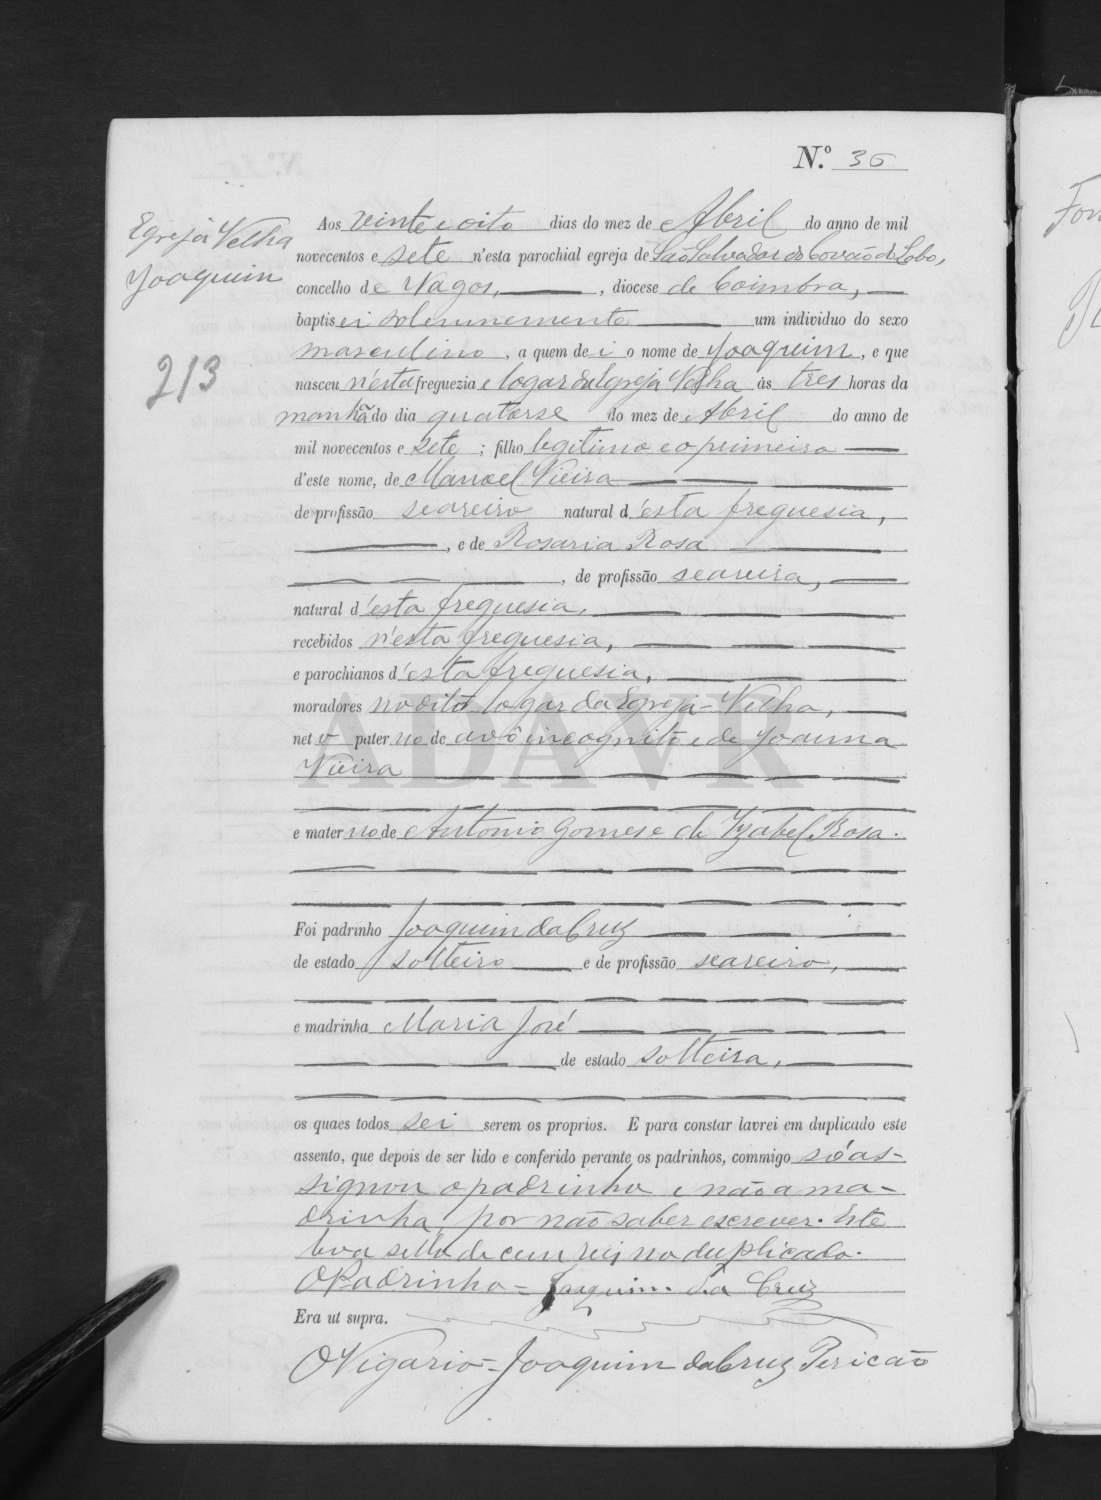 N.º 36
Egreja Velha
Joaquim
213
Aos vinte e oito dias do mez de Abril do anno de mil
novecentos e sete n'esta parochial egreja de São Salvador do Covão do Lobo,
concelho de Vagos, , diocese de Coimbra,
baptisei solemnemente um individuo do sexo
masculino , a quem dei o nome de Joaquim , e que
nasceu n'esta freguezia e logar da Egreja Velha ás tres horas da
manhã do dia quatorse do mez de Abril do anno de
mil novecentos e sete ; filho legitimo e o primeiro
d'este nome, de Manoel Vieira
de profissão seareiro natural d'esta freguesia,
, e de Rosaria Rosa
, de profissão seareira,
natural d'esta freguesia,
recebidos n'esta freguesia,
e parochianos d'esta freguesia,
moradores no dito logar da Egreja-Velha,
neto paterno de avô incognito e de Joanna
Vieira
ADAVR
e materno de Antonio Gomes e de Yzabel Rosa.
Foi padrinho Joaquim da Cruz
de estado solteiro e de profissão seareiro,
e madrinha Maria José
de estado solteira,
os quaes todos sei serem os proprios. E para constar lavrei em duplicado este
assento, que depois de ser lido e conferido perante os padrinhos, commigo só as-
signou o padrinho e não a ma-
drinha, por não saber escrever. Este
leva sello de cem reis no duplicado.
O Padrinho = Joaquim da Cruz
Era ut supra.
O Vigario = Joaquim da Cruz Pericão